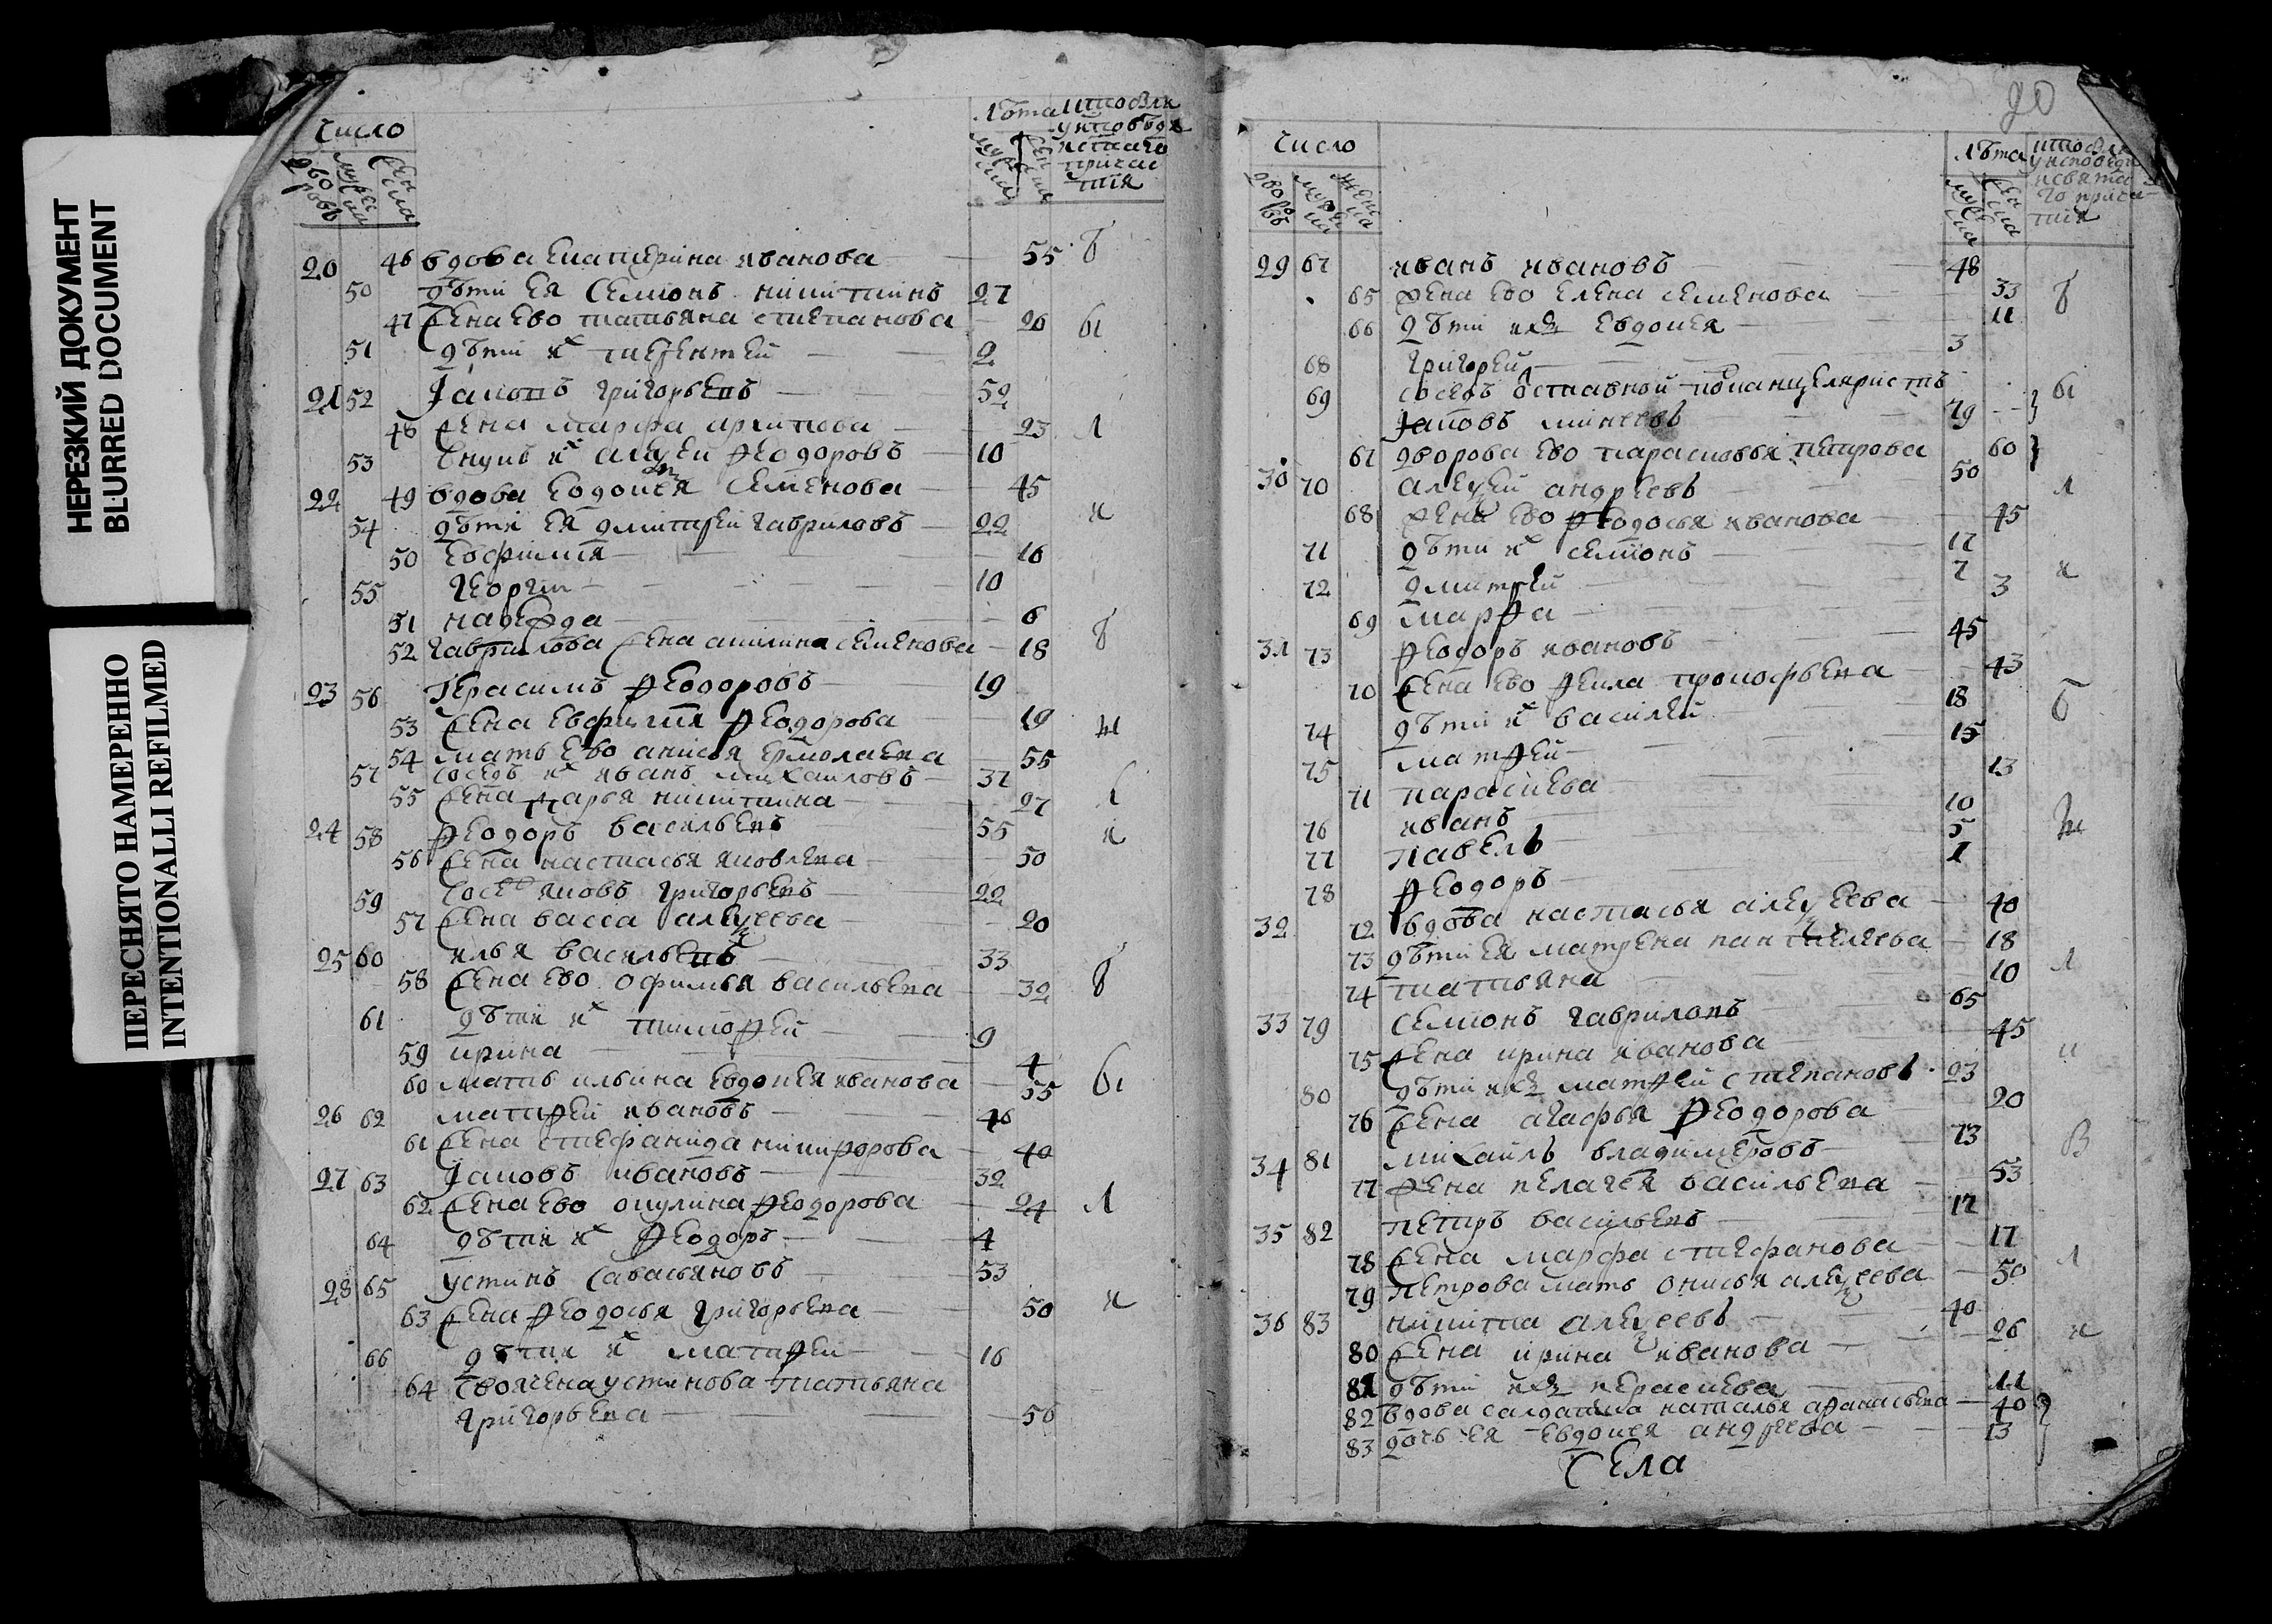 НЕРЕЗКИЙ ДОКУМЕНТ
BLURRED DOCUMENT
ПЕРЕСНЯТО НАМЕРЕННО
INTENTIONALLI REFILMED
Число
Лѣта
дворовъ мужеска женска
20 46 вдова Екатерина иванова 55 б
50 дѣти Ея Семионъ никитинъ 27
47 жена Ево татьяна степанова 26 ы
51 дѣти их терентей 2
21 52 Iаковъ григорьевъ 52
48 жена марфа архипова 23 л
53 внукъ их алеѯеи ѳеодоровъ 10
22 49 вдова Евдокея Семенова 45 и
54 дѣти Ея дмитрей гавриловъ 22
50 Евфимия 16
55 георгии 10
51 надежда 6
52 гаврилова жена акилина семенова 18 б
23 56 герасимъ ѳеодоровъ 19
53 жена Евфимия ѳеодорова 19 ы
54 мать Ево анисья Ермолаева 55
57 соседъ их иванъ михаиловъ 37
55 жена дарья никитина 27
24 58 ѳеодоръ васильевъ 55 и
56 жена настасья яковлева 50
59 сосед яковъ григорьевъ 22
57 жена васса алеѯеева 20
25 60 илья васильевъ 33
58 жена Ево офимья васильева 32 б
61 дѣти их тимоѳей 9
59 ирина 4
60 мать ильина Евдокея иванова 55 ы
26 62 матѳей ивановъ 46
61 жена стефанида никифорова 40
27 63 Iаковъ ивановъ 32
62 жена Ево окулина ѳеодорова 24 л
64 дѣти их ѳеодоръ 4
28 65 устинъ савасьяновъ 53
63 жена ѳеодосья григорьева 50 и
66 дѣти их матѳей 16
64 своячена устинова татьяна
григорьева 50
20
Число
Лѣта
29 67 иванъ ивановъ 48
65 жена Ево Елена семенова 33 б
66 дѣти их Евдокея 11
68 григорей 3
69 соседъ оставной подканцеляристъ ы
Iаковъ минеевъ 79
67 дворова Ево парасковья петрова 60
30 70 алеѯей андреевъ 50 л
68 жена Ево ѳеодосья иванова 45
71 дѣти их семионъ 17
72 дмитрей 7 и
69 марѳа 3
31 73 ѳеодоръ ивановъ 45
70 жена Ево ѳекла прокофьева 43
74 дѣти их василей 18 б
75 матѳей 15
71 парасиева 13
76 иванъ 10
77 павелъ 5 ы
78 ѳеодоръ 1
32 72 вдова настасья алеѯеева 40
73 дѣти Ея матрена пантелеева 18
74 татьяна 10 л
33 79 Семионъ гавриловъ 65
75 жена ирина иванова 45
80 дѣти их матѳей степановъ 23 и
76 жена агафья ѳеодорова 20
34 81 михаилъ владимеровъ 73 В
77 жена пелагея васильева 53
35 82 петръ васильевъ 17
78 жена марфа стефанова 17
79 петрова мать онисья алеѯеева 50 л
36 83 никита алеѯеевъ 40
80 жена ирина иванова 26 и
81 дѣти их парасиева 11
82 вдова салдатка наталья аѳанасьева 40
83 дочь Ея Евдокея андреева 13
Села